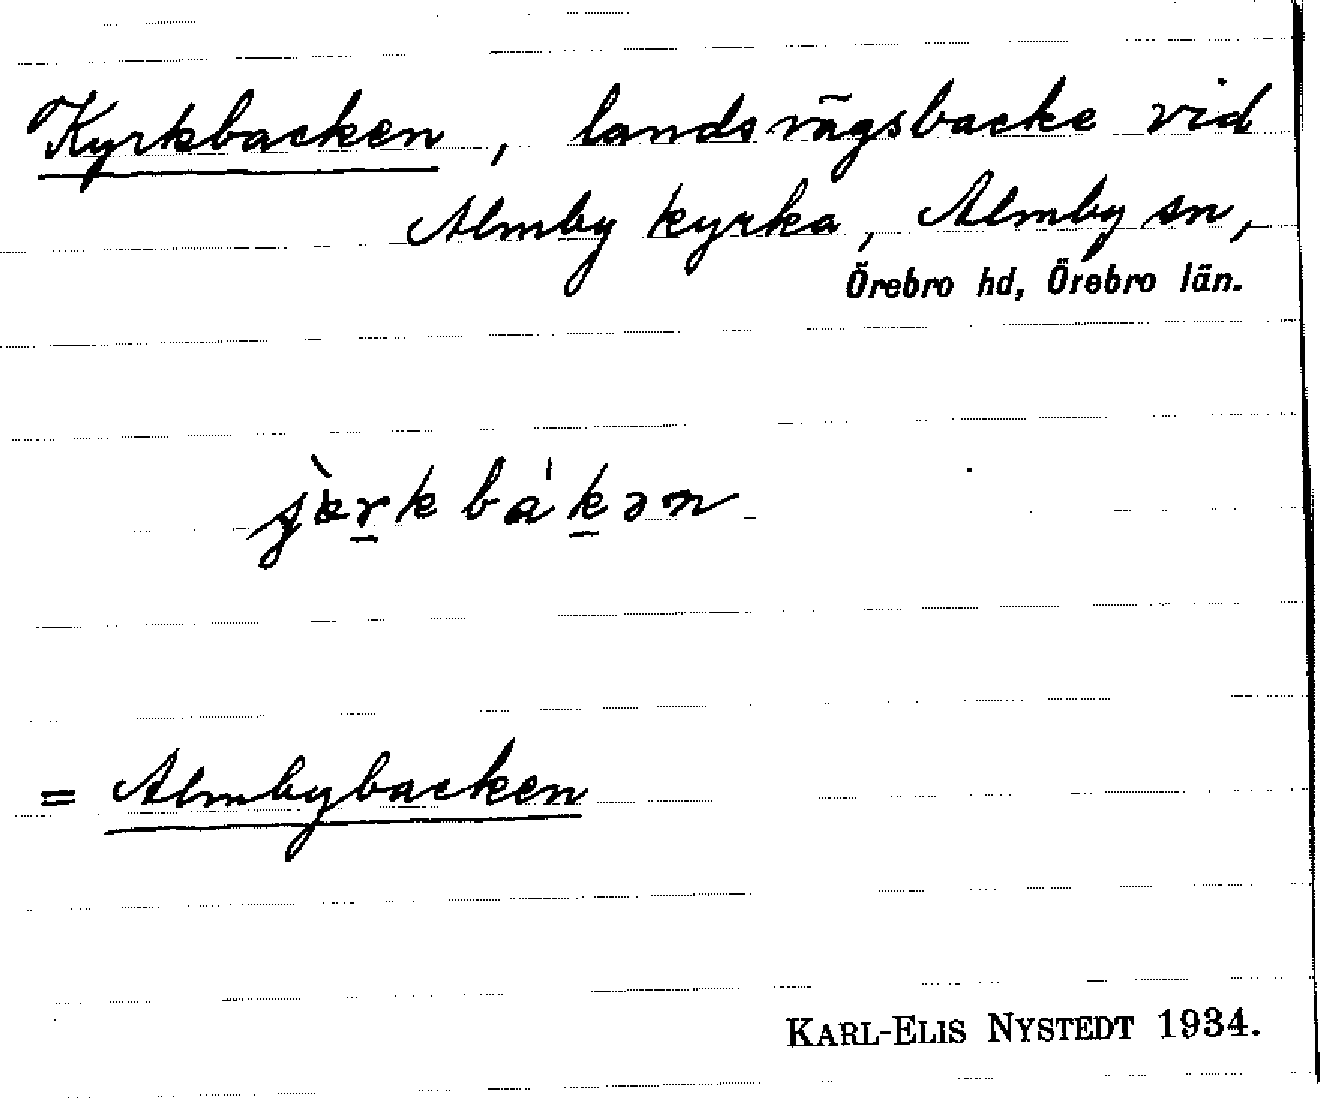 Kyrkbacken, landsvägsbacke vid
Almby kyrka, Almby sn,
Örebro hd, Örebro län.
= Almbybacken
KARL-ELIS NYSTEDT 1934.